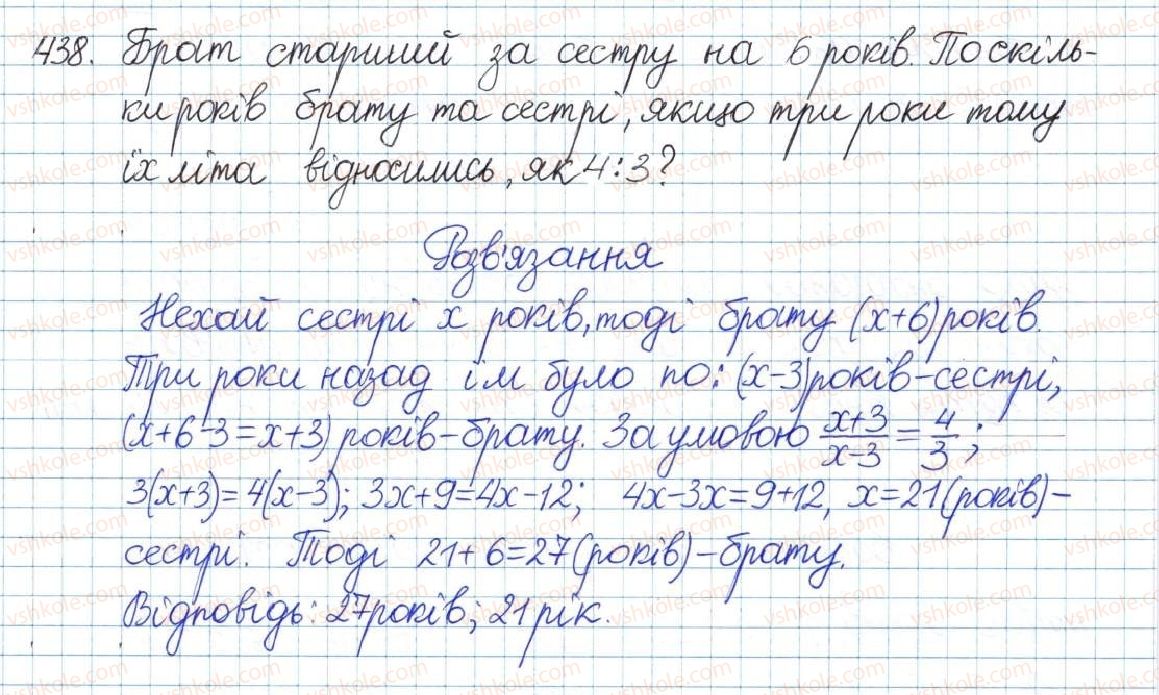 438. Брат старший за сестру на 6 років. По скіль-
ки років брату та сестрі, якщо три роки тому
їх літа відносились, як 4:3?
Розв'язання
Нехай сестрі x років, тоді брату (x+6) років.
Три роки назад їм було по: (x-3) років - сестрі,
(x+6-3=x+3) років - брату. За умовою \frac{x+3}{x-3} = \frac{4}{3};
3(x+3)=4(x-3); 3x+9=4x-12; 4x-3x=9+12, x=21 (років) -
сестрі. Тоді 21+6=27 (років) - брату.
Відповідь: 27 років; 21 рік.
vshkole.com